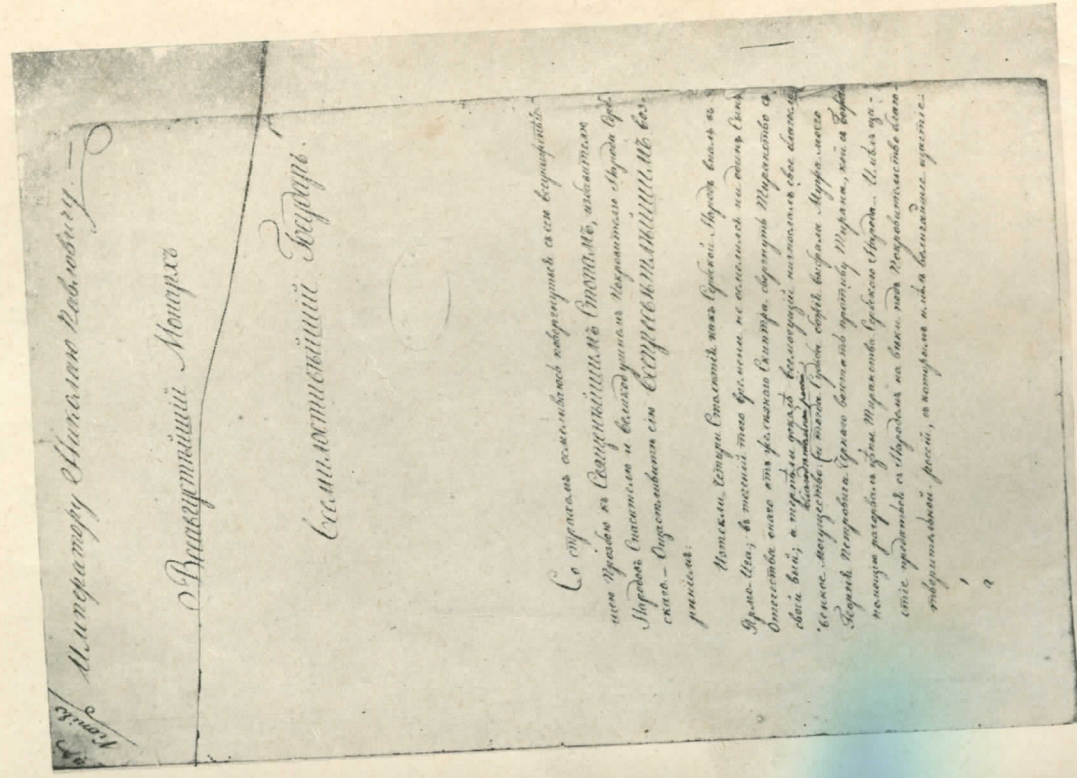 Копія
Императору Николаю Павловичу.
Вшавгустѣйшій Монархъ
Всемилостивѣйшій Государь.
Со страхомъ осмеливаюсь повергнутись съ сею
нею Прозбою къ Священнѣйшимъ Стопамъ, избавителю
Народовъ Спасителю и великодушному Покровителю Народа Серб-
скаго. — Ощастливить сію воз-
рѣніемъ:
Изтекли Четири Столѣтія какъ Сербскій Народъ впалъ въ
Ярмо Ига; въ теченій того времени не осмелился ни одинъ Сынъ
Отечества онаго отъ железнаго Скиптра свергнуть Тиранство съ
своей выи; и терпѣли докадъ всемогущій низпослалъ свое
могущество: и тогда Судьбы выбрали Мужа моего
Георгія Петровича Чернаго возстать противу Тирана, кой съ
помощію разорвалъ Тиранства Сербскаго Народа. Имѣлъ ща-
стіе предаться съ Народомъ на вѣки подъ Покровительство благо-
творительной россіи, съ которымъ имѣлъ величайшее щастіе